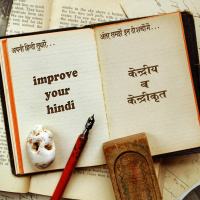 अपनी हिन्दी सुधारें...
improve
your
hindi
अंतर समझें इन शब्दों में...
केन्द्रीय
व
केन्द्रीकृत